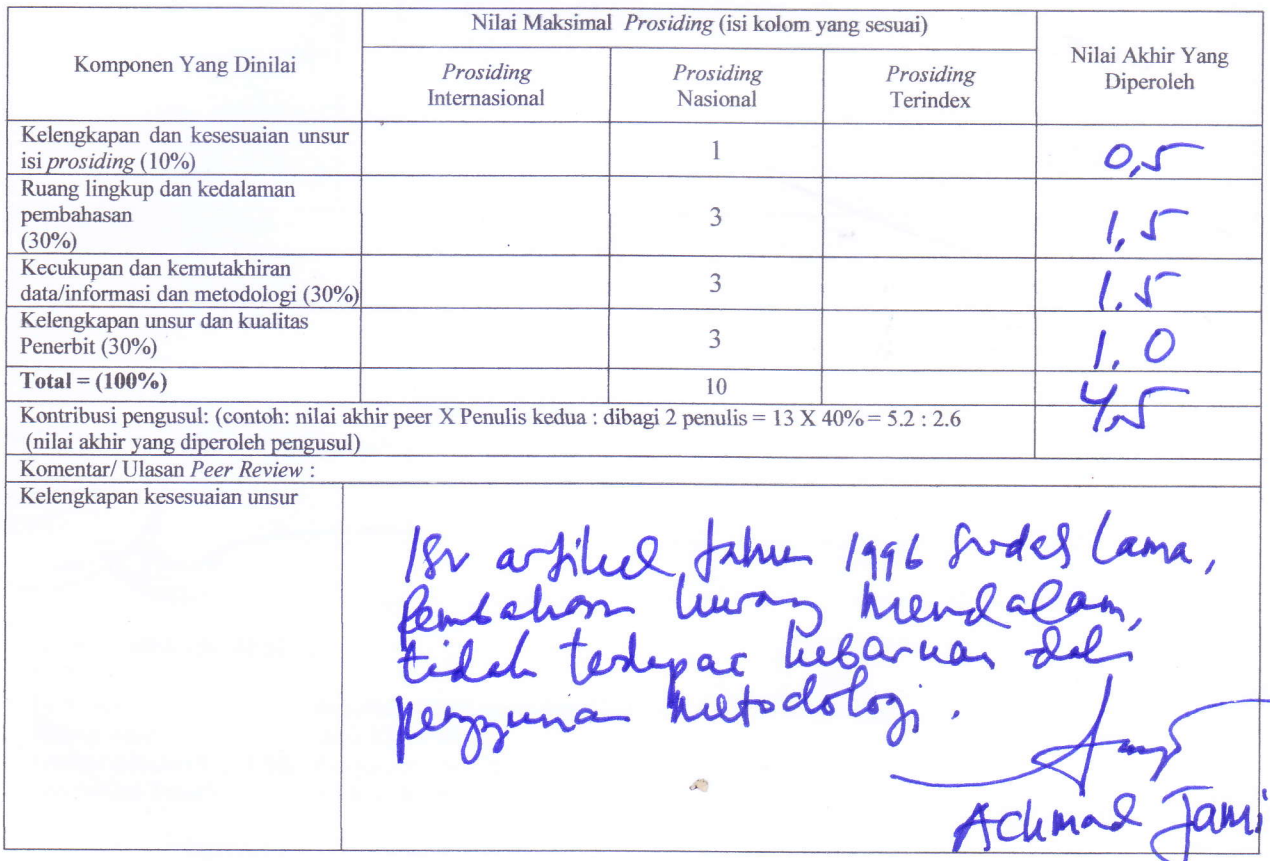 Komponen Yang Dinilai
Nilai Maksimal Prosiding (isi kolom yang sesuai)
Nilai Akhir Yang
Diperoleh
Prosiding
Internasional
Prosiding
Nasional
Prosiding
Terindex
Kelengkapan dan kesesuaian unsur
isi prosiding (10%)
1
0,5
Ruang lingkup dan kedalaman
pembahasan
(30%)
3
1,5
Kecukupan dan kemutakhiran
data/informasi dan metodologi (30%)
3
1.5
Kelengkapan unsur dan kualitas
Penerbit (30%)
3
1.0
Total = (100%)
10
4,5
Kontribusi pengusul: (contoh: nilai akhir peer X Penulis kedua : dibagi 2 penulis = 13 X 40% = 5.2 : 2.6
(nilai akhir yang diperoleh pengusul)
Komentar/ Ulasan Peer Review :
Kelengkapan kesesuaian unsur
Isi artikel tahun 1996 sudah lama,
pembahasan kurang mendalam,
tidak terdapat kebaruan dalam
metodologi.
Achmad